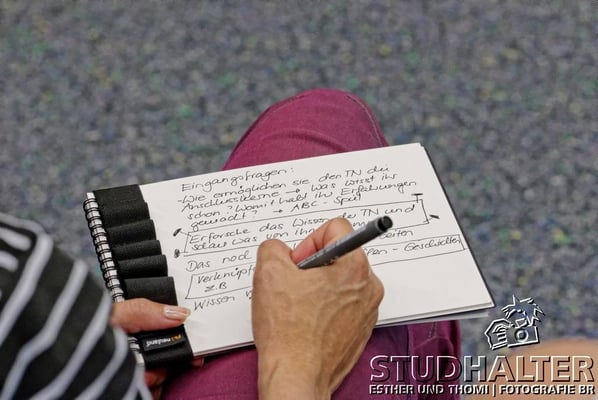 Eingangsfragen:
-Wie ermöglichen sie den TN die
Anschlusskerne → Was wisst ihr
schon? Womit habt ihr Erfahrungen
gemacht? → ABC - Spiel
Erforsche das Wissen der TN und
schau was von ihn
Das noch
Verknüpf fen - Geschichten
z.B
Wissen
neuland
STUDHALTER
ESTHER UND THOMI | FOTOGRAFIE BR